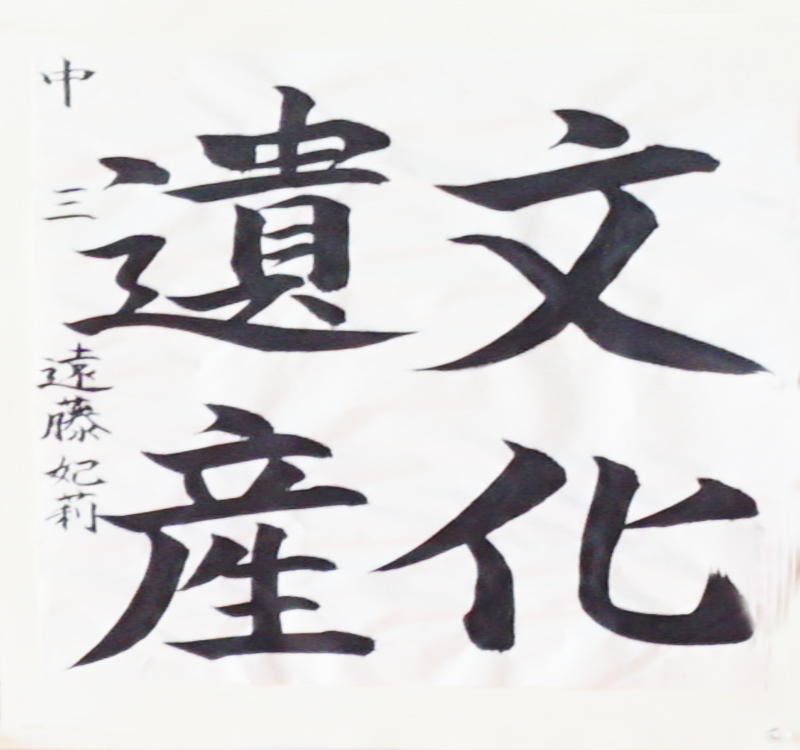 文化
遺産
中三 遠藤妃莉